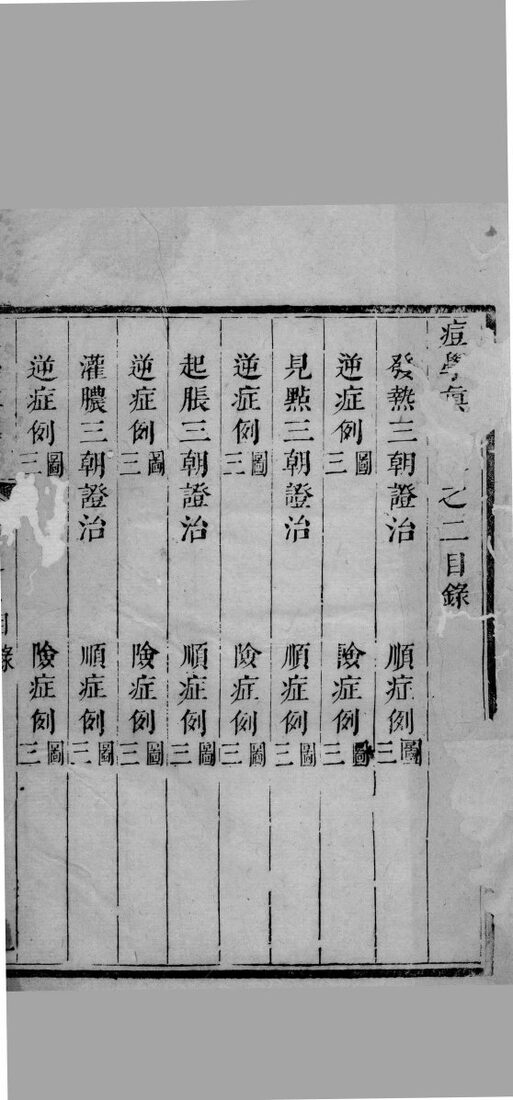 痘學真之二目錄
發熱三朝證治 順症例圖三
逆症例圖三 險症例圖三
見點三朝證治 順症例圖三
逆症例圖三 險症例圖三
起脹三朝證治 順症例圖三
逆症例圖三 險症例圖三
灌膿三朝證治 順症例圖三
逆症例圖三 險症例圖三
目錄